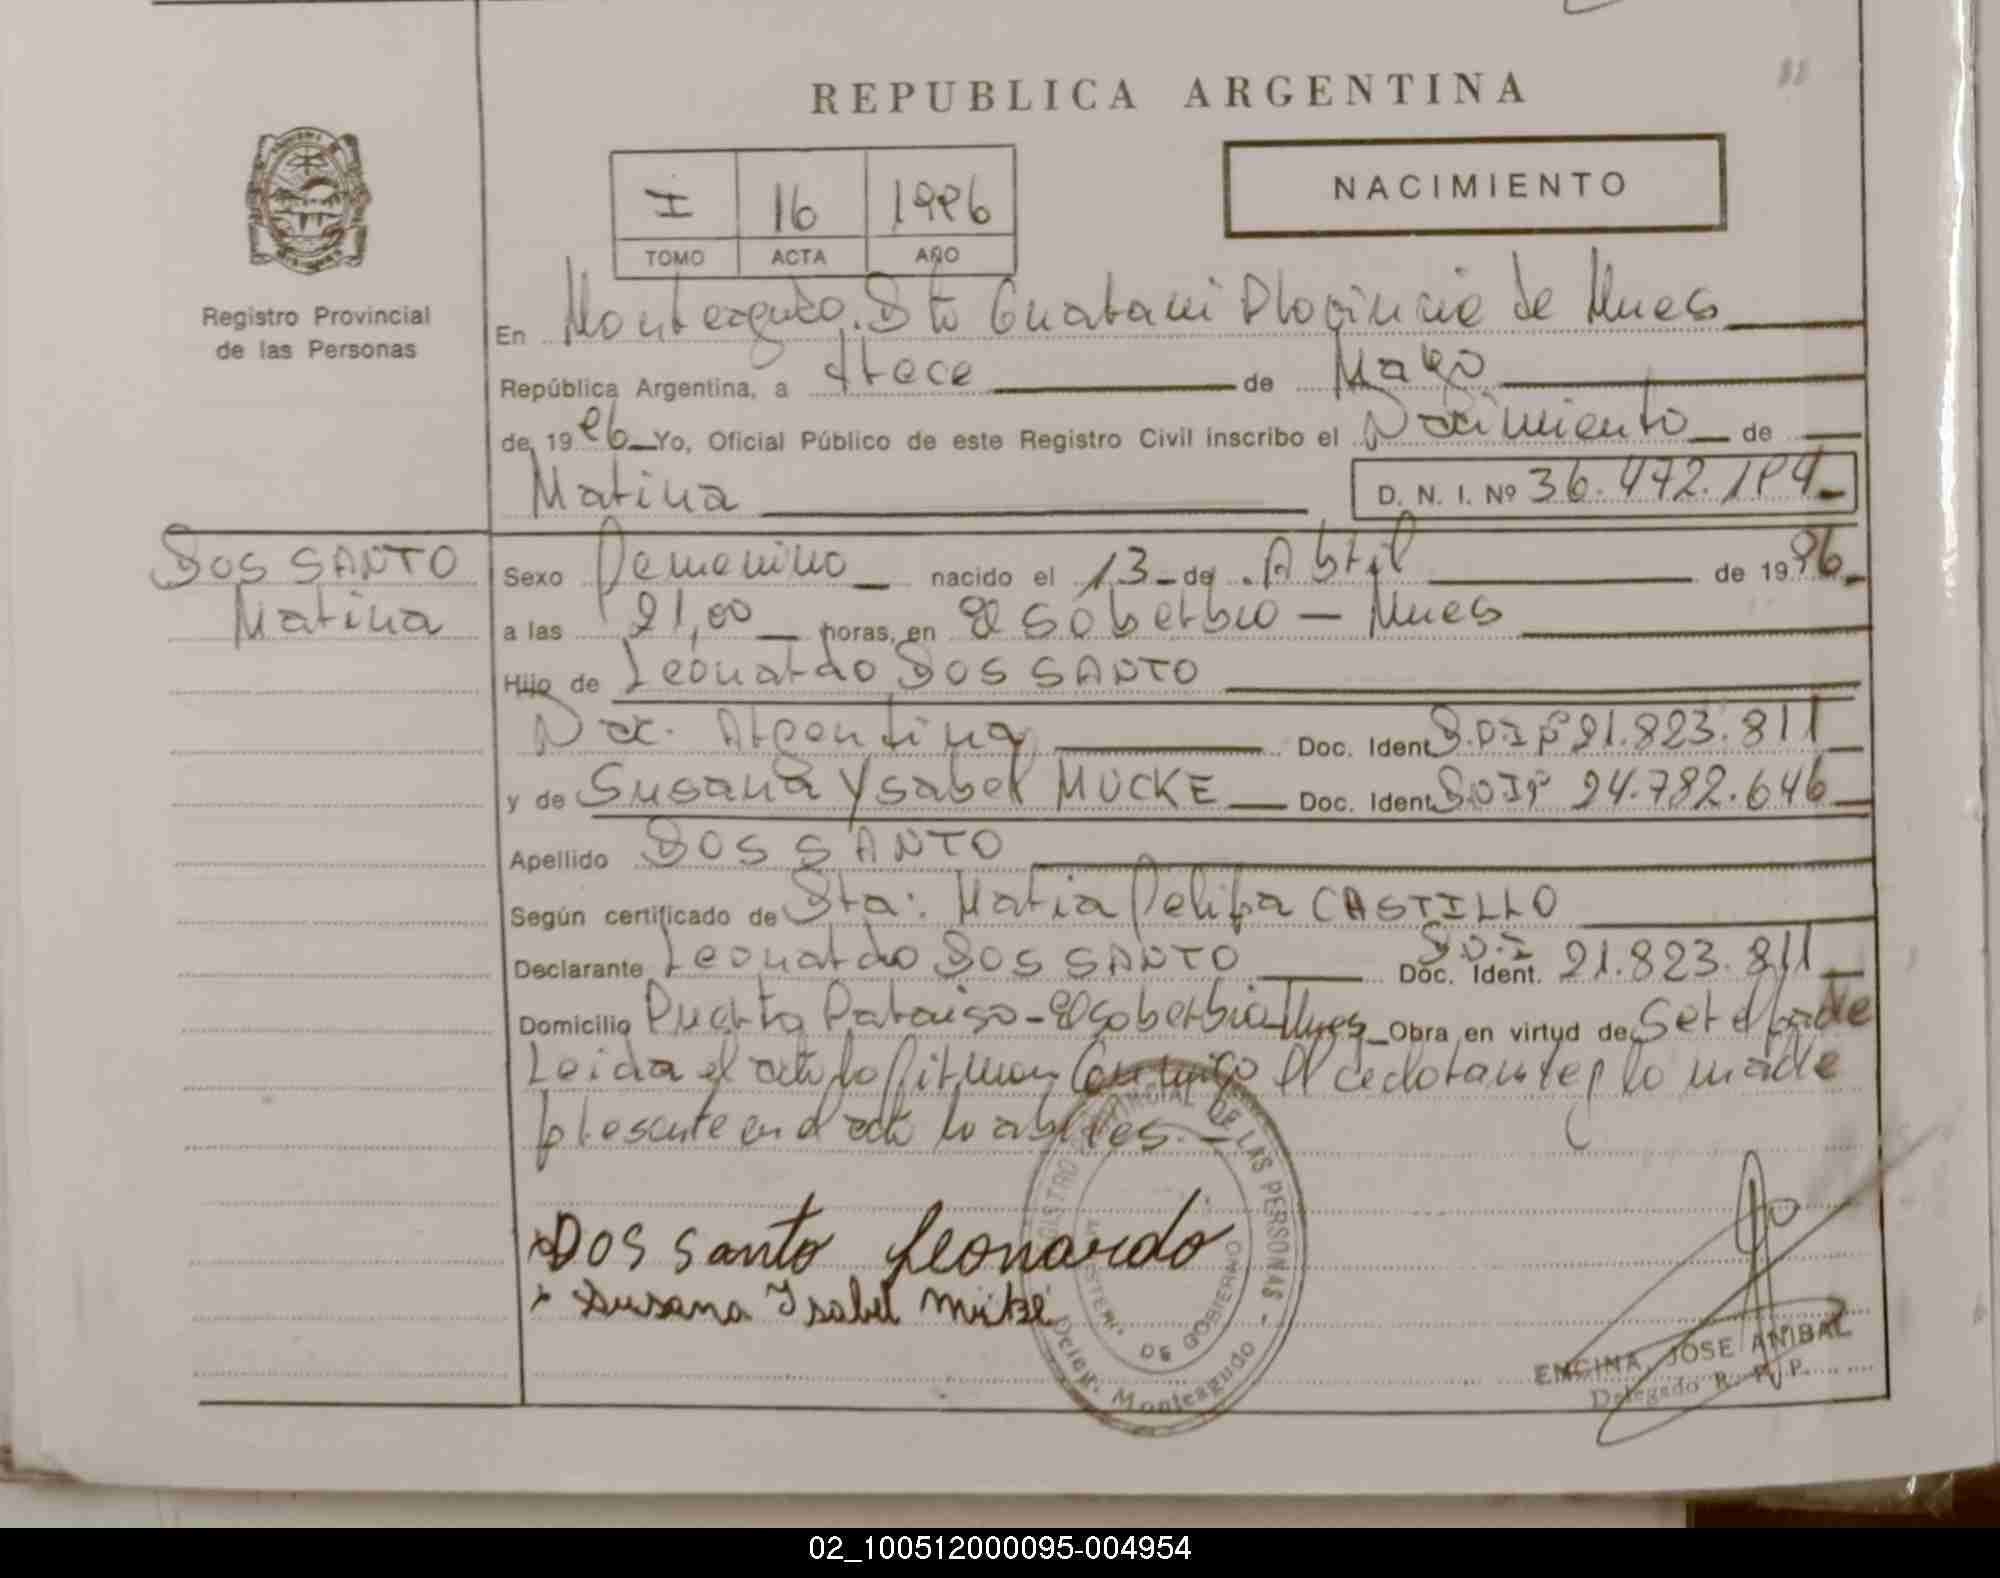 REPUBLICA ARGENTINA
NACIMIENTO
I 16 1986
TOMO ACTA AÑO
Registro Provincial
de las Personas
En Monteagudo. Dto Guarani Provincia de Mnes
República Argentina, a trece de Mayo
de 19 86 Yo, Oficial Público de este Registro Civil inscribo el Nacimiento de
Marina D. N. I. Nº 36.472.184
DOS SANTO
Marina
Sexo Femenino nacido el 13 de Abril de 19 86
a las 21,00 horas, en El Soberbio - Mnes
Hijo de Leonardo DOS SANTO
Nac. Argentina Doc. Ident D.N.I Nº 21.823.811
y de Susana Ysabel MUCKE Doc. Ident D.N.I Nº 24.782.646
Apellido DOS SANTO
Según certificado de Sta: Maria Felipa CASTILLO
Declarante Leonardo DOS SANTO Doc. Ident. D.N.I 21.823.811
Domicilio Puerto Paraiso - El Soberbio - Mnes Obra en virtud de Ser el padre
Leida el acta la firman Conmigo el declarante y la madre
presente en el acto
DOS Santo Leonardo
Susana Isabel
REGISTRO PROVINCIAL DE LAS PERSONAS -
MINISTERIO DE GOBIERNO
Deleg. Monteagudo
ENCINA, JOSE ANIBAL
Delegado R. P. P.
02_100512000095-004954